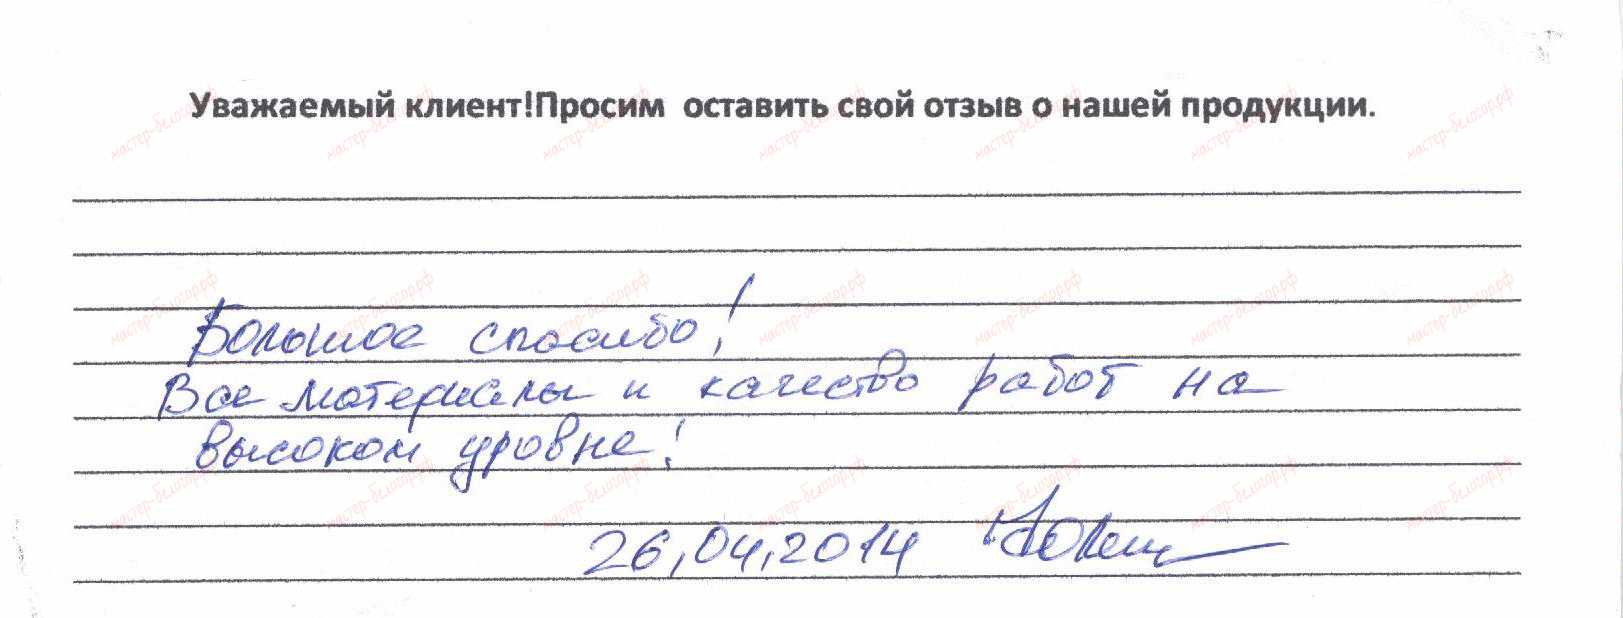 Уважаемый клиент!Просим оставить свой отзыв о нашей продукции.
Большое спасибо!
Все материалы и качество работ на
высоком уровне!
26.04.2014
мастер-белосор.рф